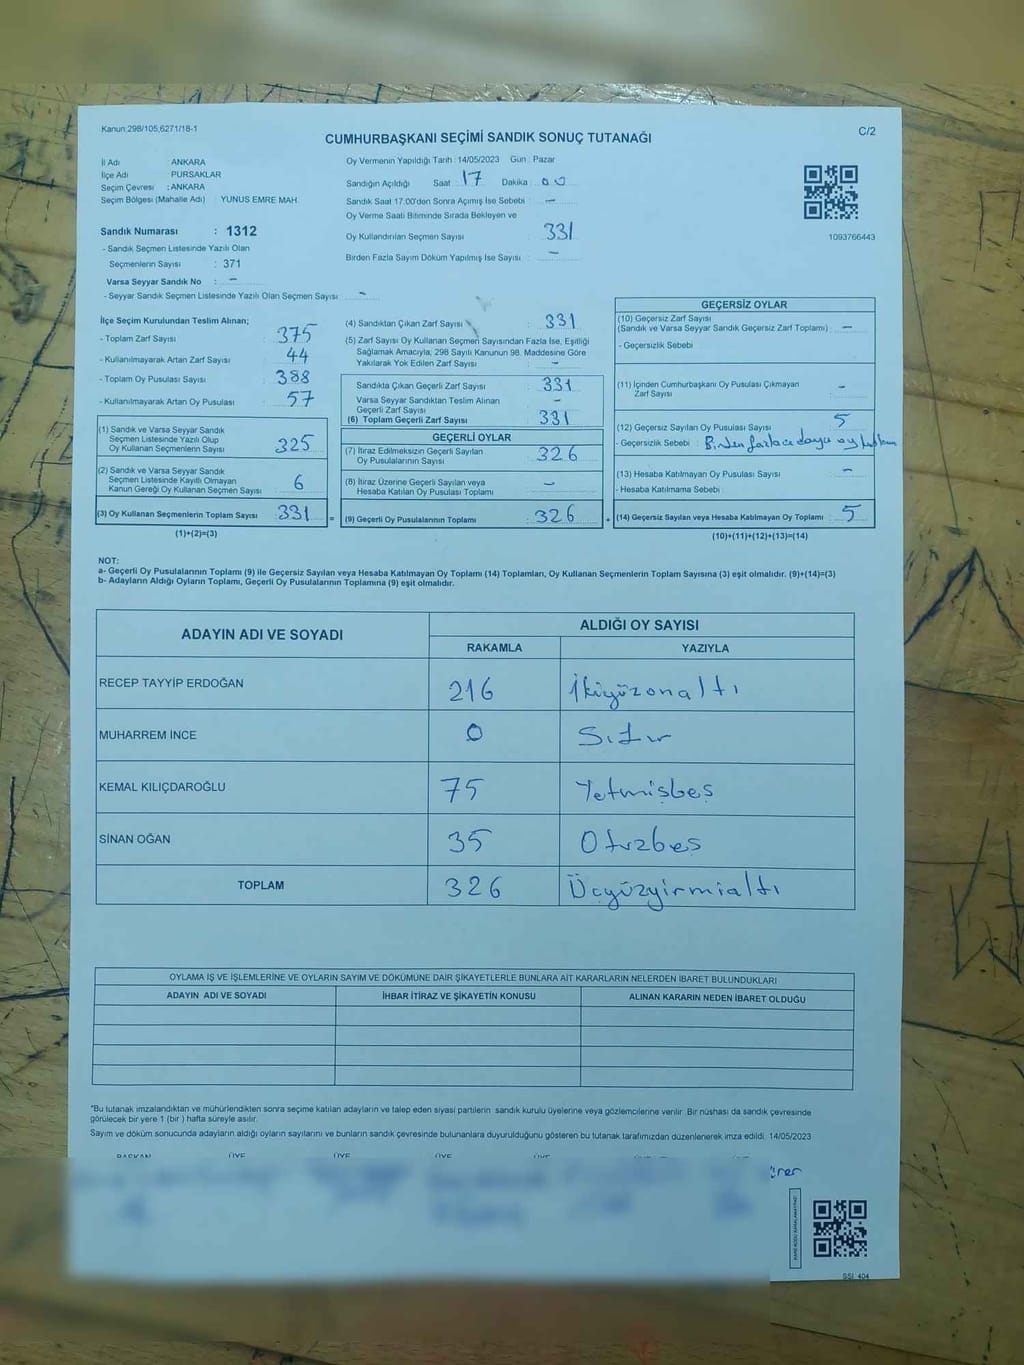 Kanun:298/105,6271/18-1
C/2
CUMHURBAŞKANI SEÇİMİ SANDIK SONUÇ TUTANAĞI
İl Adı ANKARA
İlçe Adı PURSAKLAR
Seçim Çevresi : ANKARA
Seçim Bölgesi (Mahalle Adı) YUNUS EMRE MAH.
Sandık Numarası : 1312
- Sandık Seçmen Listesinde Yazılı Olan
Seçmenlerin Sayısı : 371
Varsa Seyyar Sandık No : -
- Seyyar Sandık Seçmen Listesinde Yazılı Olan Seçmen Sayısı : -
Oy Vermenin Yapıldığı Tarih : 14/05/2023 Gün : Pazar
Sandığın Açıldığı Saat : 17 Dakika : 00
Sandık Saat 17.00'den Sonra Açımış İse Sebebi : -
Oy Verme Saati Bitiminde Sırada Bekleyen ve
Oy Kullandırılan Seçmen Sayısı : 331
Birden Fazla Sayım Döküm Yapılmış İse Sayısı : -
1093766443
İlçe Seçim Kurulundan Teslim Alınan;
- Toplam Zarf Sayısı : 375
- Kullanılmayarak Artan Zarf Sayısı : 44
- Toplam Oy Pusulası Sayısı : 388
- Kullanılmayarak Artan Oy Pusulası : 57
(1) Sandık ve Varsa Seyyar Sandık
Seçmen Listesinde Yazılı Olup
Oy Kullanan Seçmenlerin Sayısı : 325
(2) Sandık ve Varsa Seyyar Sandık
Seçmen Listesinde Kayıtlı Olmayan
Kanun Gereği Oy Kullanan Seçmen Sayısı : 6
(3) Oy Kullanan Seçmenlerin Toplam Sayısı : 331
(1)+(2)=(3)
(4) Sandıktan Çıkan Zarf Sayısı : 331
(5) Zarf Sayısı Oy Kullanan Seçmen Sayısından Fazla İse, Eşitliği
Sağlamak Amacıyla; 298 Sayılı Kanunun 98. Maddesine Göre
Yakılarak Yok Edilen Zarf Sayısı : -
Sandıkta Çıkan Geçerli Zarf Sayısı : 331
Varsa Seyyar Sandıktan Teslim Alınan
Geçerli Zarf Sayısı : -
(6) Toplam Geçerli Zarf Sayısı : 331
GEÇERLİ OYLAR
(7) İtiraz Edilmeksizin Geçerli Sayılan
Oy Pusulalarının Sayısı : 326
(8) İtiraz Üzerine Geçerli Sayılan veya
Hesaba Katılan Oy Pusulası Toplamı : -
= (9) Geçerli Oy Pusulalarının Toplamı : 326 +
GEÇERSİZ OYLAR
(10) Geçersiz Zarf Sayısı
(Sandık ve Varsa Seyyar Sandık Geçersiz Zarf Toplamı) : -
- Geçersizlik Sebebi :
(11) İçinden Cumhurbaşkanı Oy Pusulası Çıkmayan
Zarf Sayısı : -
(12) Geçersiz Sayılan Oy Pusulası Sayısı : 5
- Geçersizlik Sebebi : Birden fazla adaya oy
(13) Hesaba Katılmayan Oy Pusulası Sayısı : -
- Hesaba Katılmama Sebebi :
(14) Geçersiz Sayılan veya Hesaba Katılmayan Oy Toplamı : 5
(10)+(11)+(12)+(13)=(14)
NOT:
a- Geçerli Oy Pusulalarının Toplamı (9) ile Geçersiz Sayılan veya Hesaba Katılmayan Oy Toplamı (14) Toplamları, Oy Kullanan Seçmenlerin Toplam Sayısına (3) eşit olmalıdır. (9)+(14)=(3)
b- Adayların Aldığı Oyların Toplamı, Geçerli Oy Pusulalarının Toplamına (9) eşit olmalıdır.
ADAYIN ADI VE SOYADI ALDIĞI OY SAYISI
RAKAMLA YAZIYLA
RECEP TAYYİP ERDOĞAN 216 İkiyüzonaltı
MUHARREM İNCE 0 Sıfır
KEMAL KILIÇDAROĞLU 75 Yetmişbeş
SİNAN OĞAN 35 Otuzbeş
TOPLAM 326 Üçyüzyirmialtı
OYLAMA İŞ VE İŞLEMLERİNE VE OYLARIN SAYIM VE DÖKÜMÜNE DAİR ŞİKAYETLERLE BUNLARA AİT KARARLARIN NELERDEN İBARET BULUNDUKLARI
ADAYIN ADI VE SOYADI İHBAR İTİRAZ VE ŞİKAYETİN KONUSU ALINAN KARARIN NEDEN İBARET OLDUĞU
"Bu tutanak imzalandıktan ve mühürlendikten sonra seçime katılan adayların ve talep eden siyasi partilerin sandık kurulu üyelerine veya gözlemcilerine verilir. Bir nüshası da sandık çevresinde
görülecek bir yere 1 (bir ) hafta süreyle asılır.
Sayım ve döküm sonucunda adayların aldığı oyların sayılarını ve bunların sandık çevresinde bulunanlara duyurulduğunu gösteren bu tutanak tarafımızdan düzenlenerek imza edildi. 14/05/2023
BAŞKAN ÜYE ÜYE ÜYE ÜYE
SSI: 404